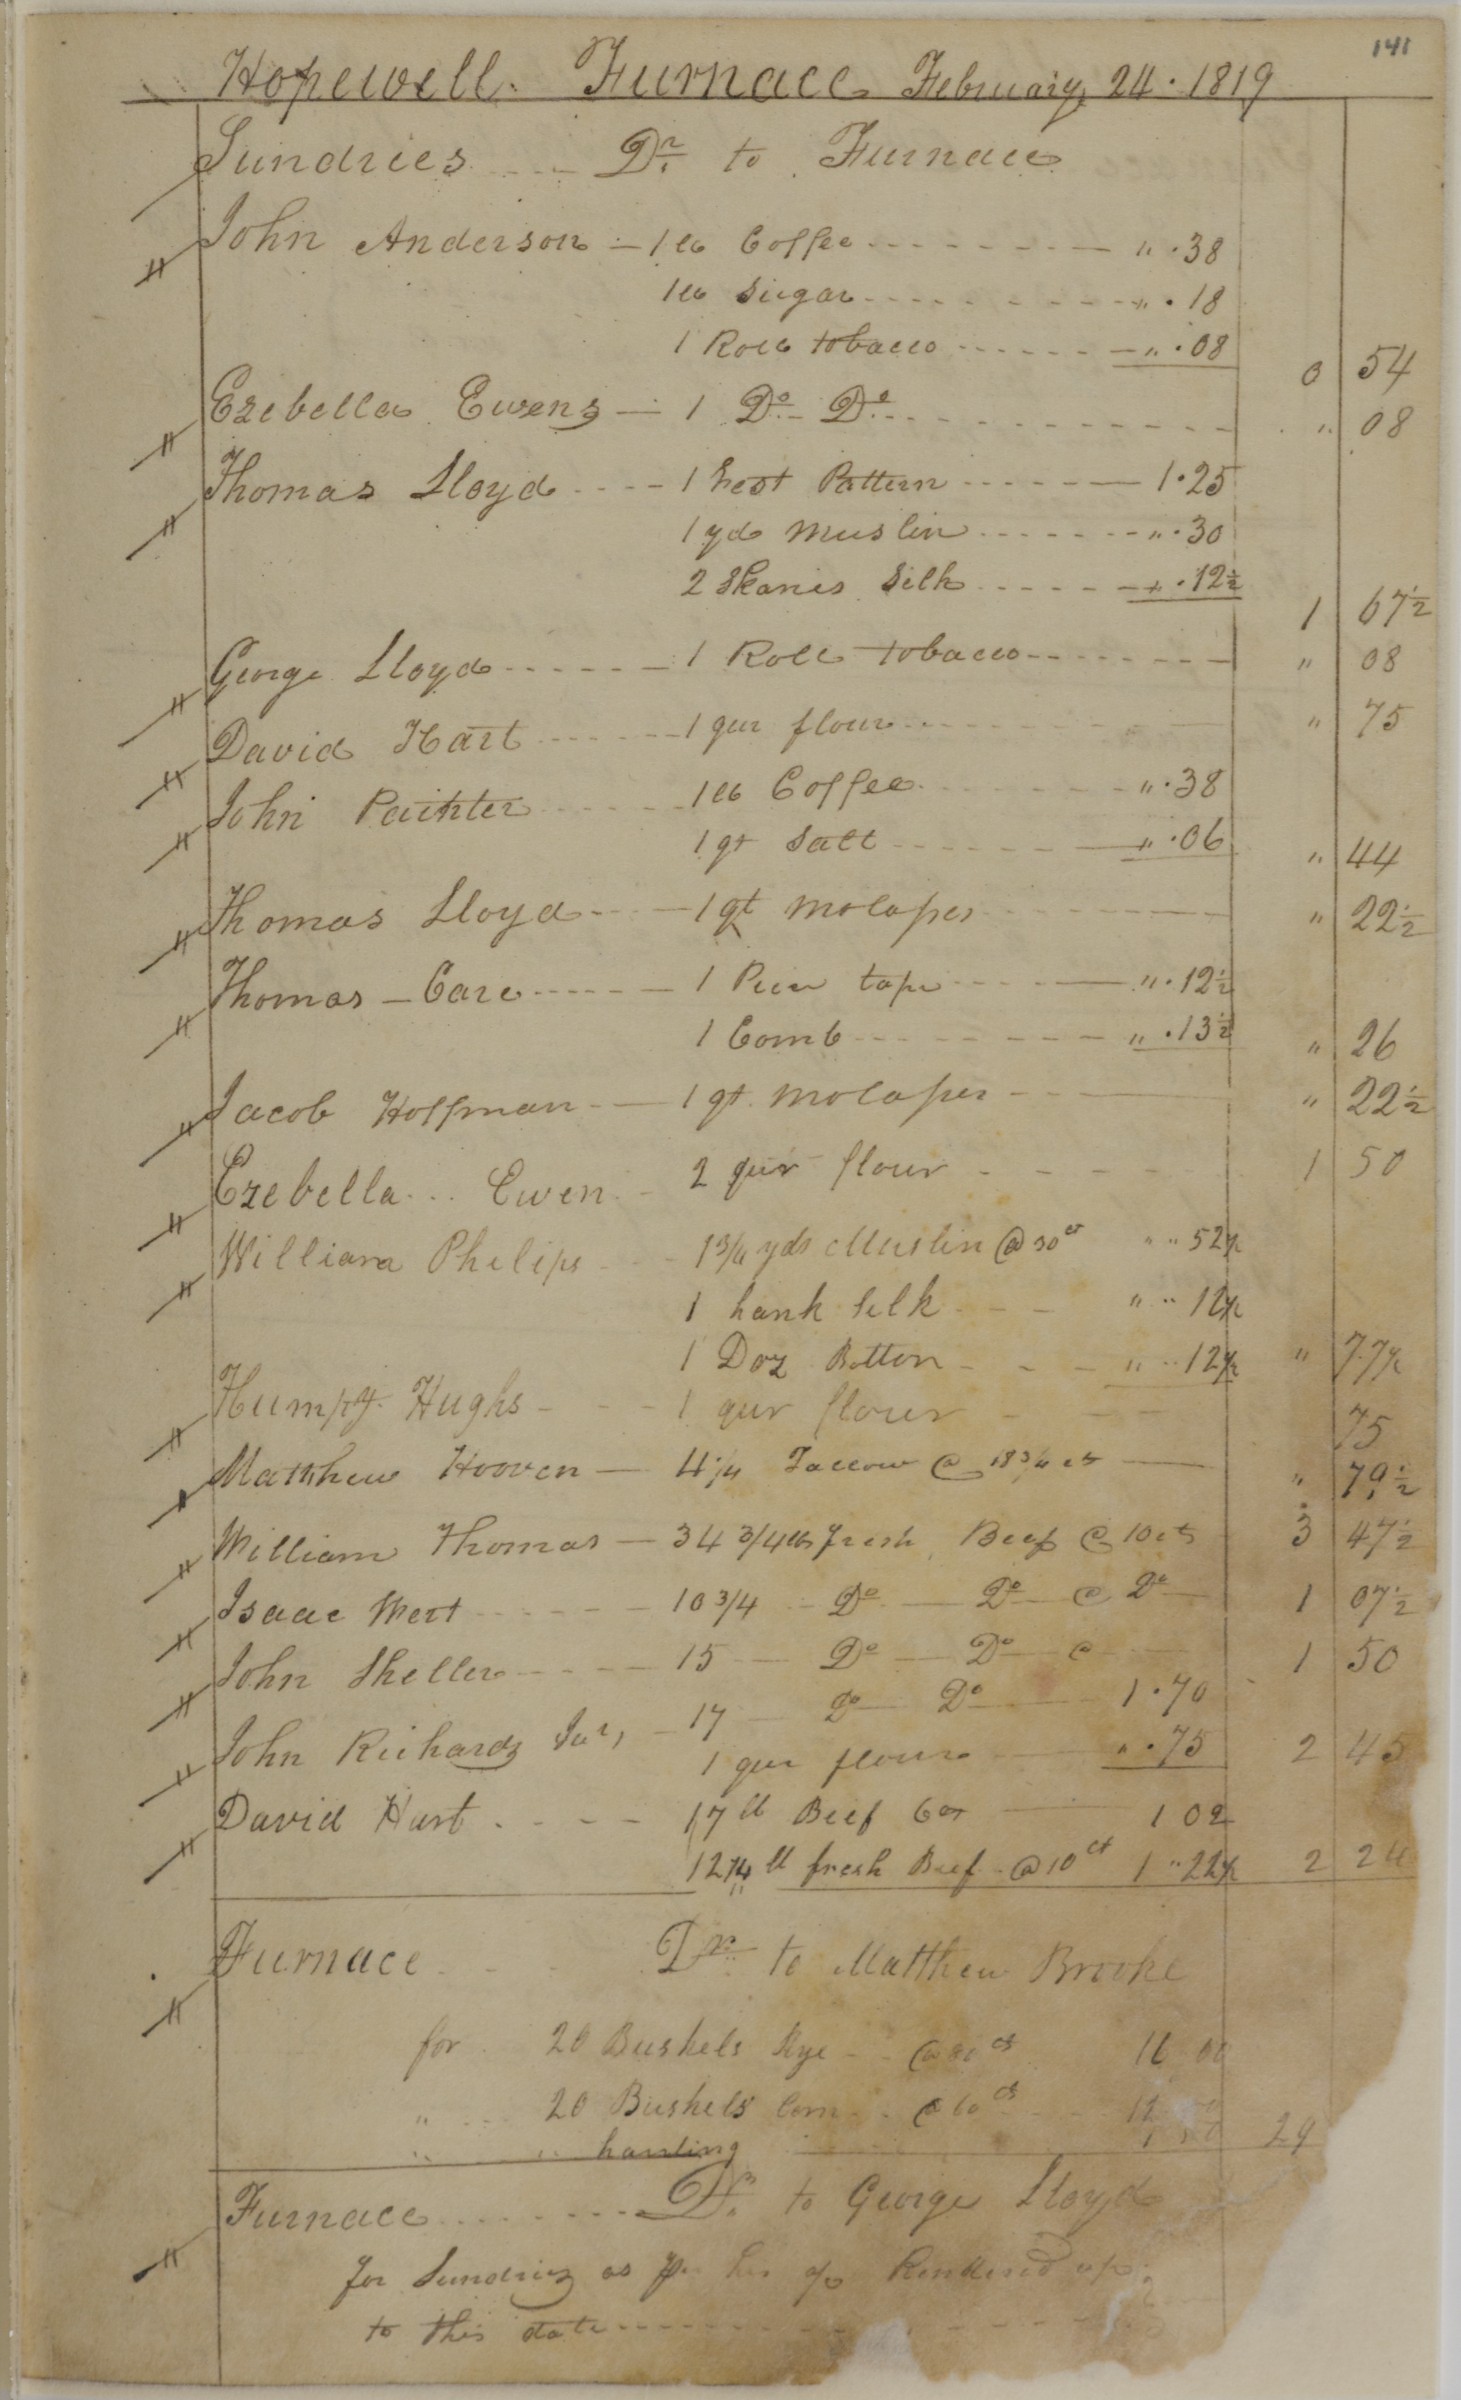 141
Hopewell Furnace February 24. 1819
Sundries Dr. to Furnace
John Anderson 1 lb Coffee " .38
1 lb Sugar " .18
1 Roll tobacco " .08 0 54
Ezebella Ewens 1 Do Do " 08
Thomas Lloyd 1 Pattern 1.25
1 yd muslin " .30
2 Skanes Silk " .12½ 1 67½
George Lloyd 1 Roll tobacco " 08
David Hart 1 qur flour " 75
John Painter 1 lb Coffee " .38
1 qt Salt " .06 " 44
Thomas Lloyd 1 qt molasses " 22½
Thomas Care 1 Piece tape " .12½
1 Comb " .13½ " 26
Jacob Hoffman 1 qt. molasses " 22½
Ezebella Ewen 2 qur flour 1 50
William Philips 1 3/4 yds Muslin @ 30 ct " " 52½
1 hank Silk " " 12½
1 Doz Botton " " 12½ " 77½
Humpy. Hughs 1 qur flour 75
Matthew Hooven 4¼ Tallow @ 18 3/4 cts " 79½
William Thomas 34 3/4 lbs fresh Beef @ 10 cts 3 47½
Isaac Wert 10 3/4 Do Do @ Do 1 07½
John Sheller 15 Do Do @ 1 50
John Richards Jur, 17 Do Do 1.70
1 qur flour " .75 2 45
David Hart 17 lb Beef 6 cts 1 02
12¼ lb fresh Beef @ 10 ct 1 " 22½ 2 24
Furnace Dr. to Matthew Brooke
for 20 Bushels Rye @ 80 cts 16 00
" 20 Bushels Corn @ 60 cts 12
" " hauling 1 50 29
Furnace Dr. to George Lloyd
for Sundries as Rendered up
to this date